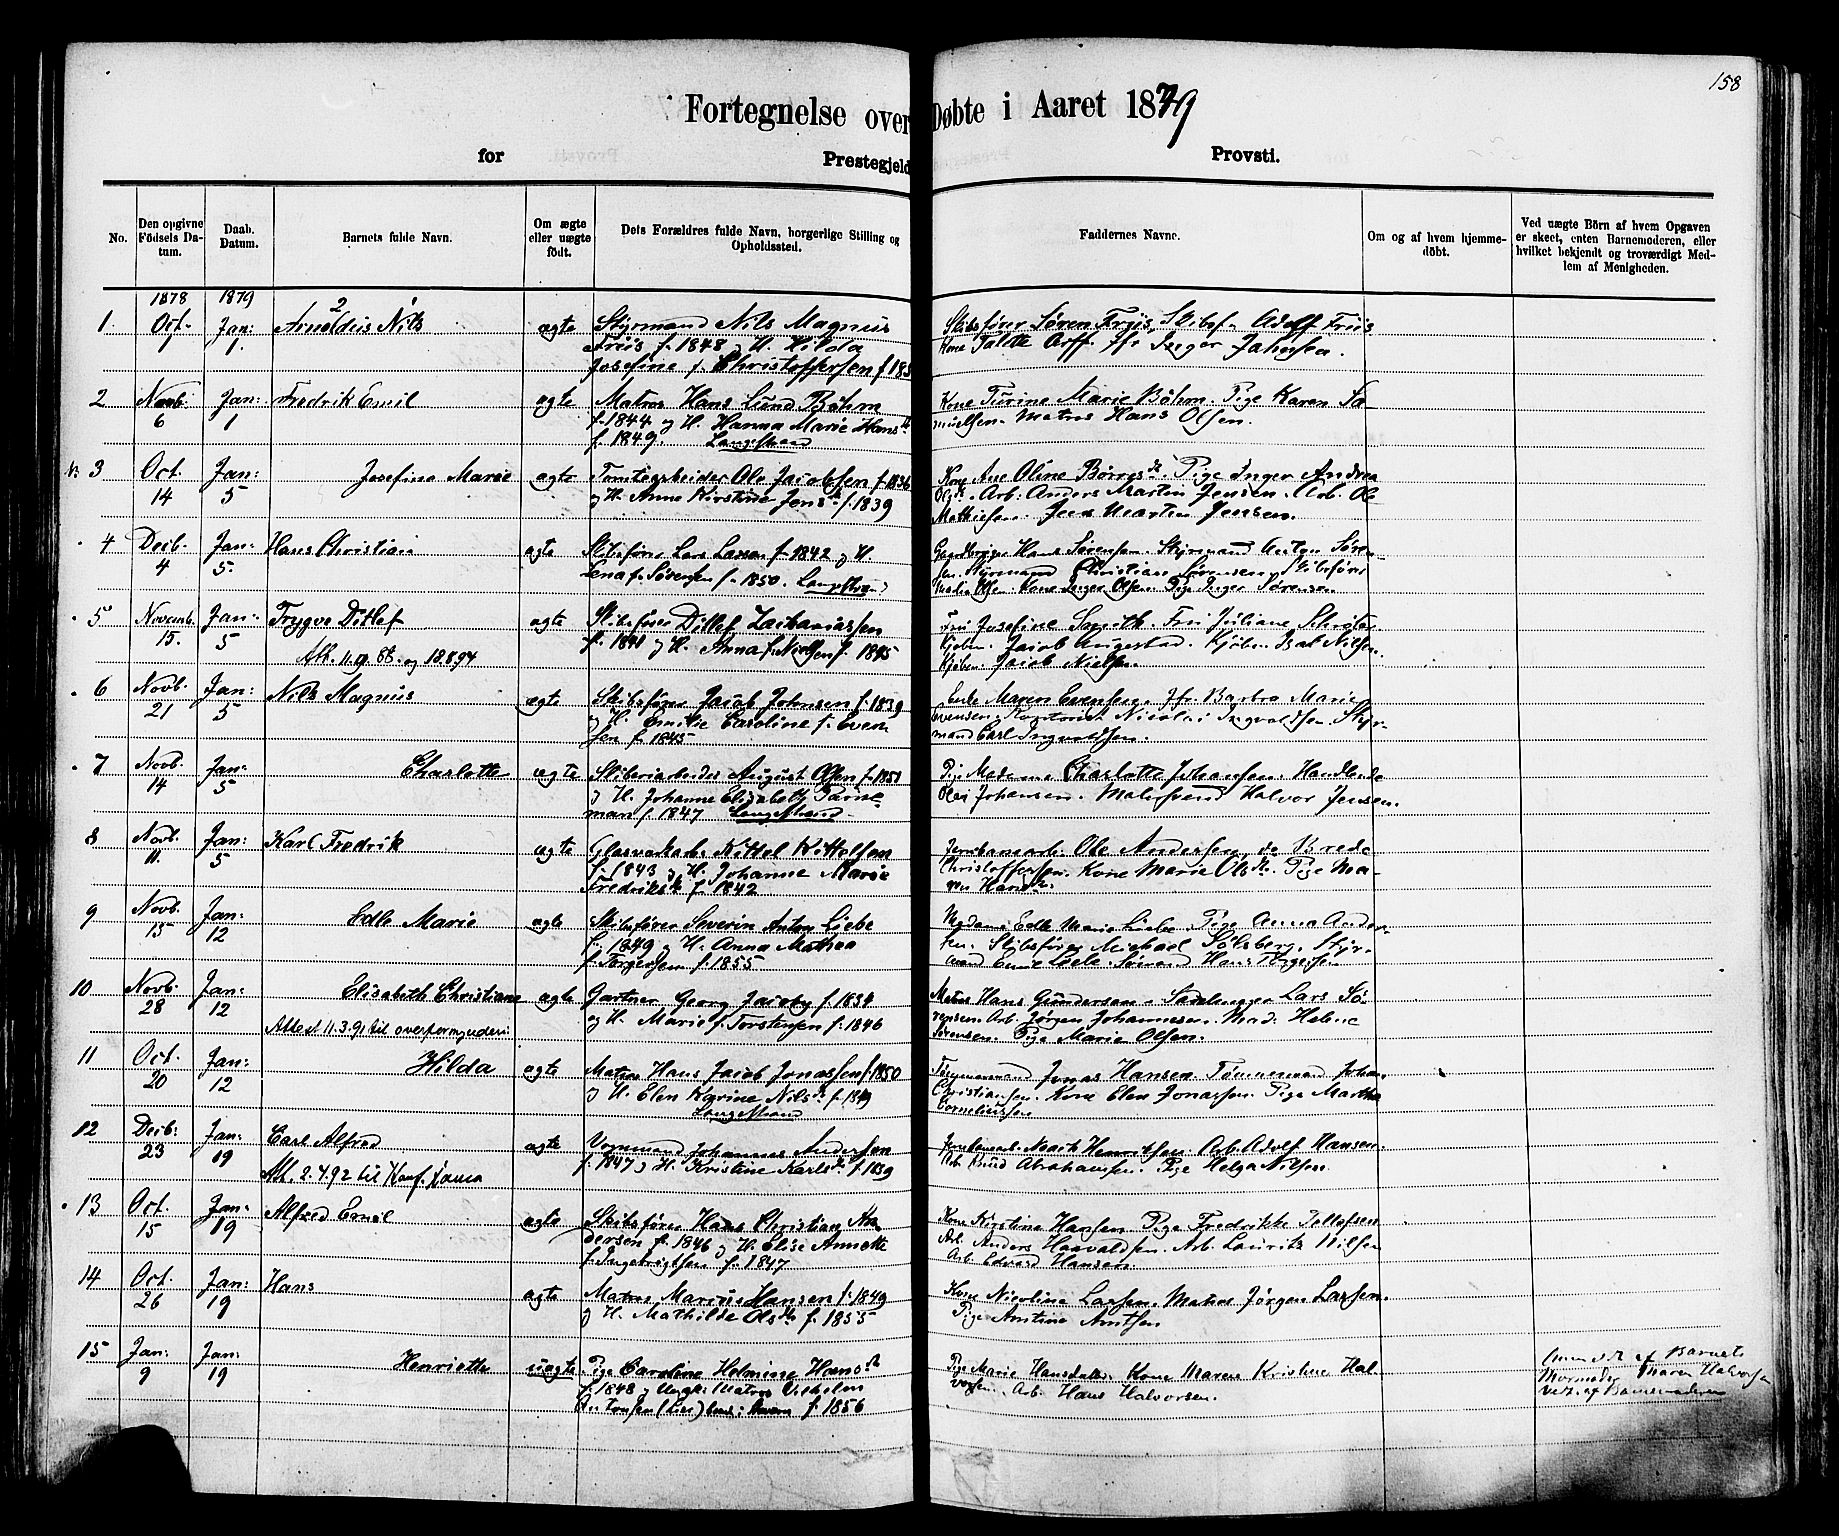 158
Fortegnelse over Døbte i Aaret 1879
for Prestegjeld Provsti.
No.
Den opgivne Fødsels Datum.
Daab. Datum.
Barnets fulde Navn.
Om ægte eller uægte født.
Dets Forældres fulde Navn, borgerlige Stilling og Opholdssted.
Faddernes Navne.
Om og af hvem hjemmedøbt.
Ved uægte Børn af hvem Opgaven er skeet, enten Barnemoderen, eller hvilket bekjendt og troværdigt Medlem af Menigheden.
1878 1879
1 Oct. 1 Jan: 1. Arnoldus Nils 2 ægte
Styrmand Nils Magnus
Friis f. 1848 og H. Hilda
Josefine f. Christoffersen f. 185
Skibsfører Søren Friis, Skibsf. Adolf Friis
Kone Orff. Jfr Inger Jahnsen.
2 Novb. 6 Jan: 1 Fredrik Emil ægte
Matros Hans Lund Bøhm
f. 1844 og H. Hanna Marie Hansdr
f. 1849. Langestrand
Kone Turine Marie Bøhm. Pige Karen Sa
muelsen. Matros Hans Olsen.
3 Oct 14 Jan: 5 Josefine Marie ægte
Tomtearbeider Ole Jacobsen f. 1836
og H. Anne Kirstine Jensdr f. 1839
Kone Ane Oline Børresdr. Pige Inger Andrea
Olsdr. Arb: Anders Martin Jensen. Arb. Ole
Mathiesen. Jens Martin Jensen.
4 Decb. 4 Jan: 5. Hans Christian ægte
Skibsfører Lars Larsen f. 1842 og H.
Lena f. Sørensen f. 1850. Langestrand
Gaardbruger Hans Sørensen. Styrmand Anton Søren
sen. Styrmand Christian Sørensen. Skibsfører
Olsen. Kone Inger Olsen. Pige Inger Sørensen
5 Novemb. 15. Jan: 5 Trygve Ditlef ægte
Att. 11.9.86. og 18.8.94
Skibsfører Ditlef Zachariassen
f. 1841 og H. Anna f. Nielsen f. 1845
Fru Josefine Smith. Fru Juliane Schrøter
Kjøbm. Jacob Augestad. Kjøbm. Isak Nilsen.
Kjøbm. Jacob Nielsen.
6 Novb. 21 Jan: 5 Nils Magnus ægte
Skibsfører Jacob Johnsen f. 1839
og H. Emilie Caroline f. Even
sen f. 1845
Enke Maren Evensen. Jfr. Barbra Marie
Evensen. Kontorist Nicolai Ingvaldsen. Styr
mand Carl Ingvaldsen.
7 Novb. 14 Jan: 5 Charlotte ægte
Sliberiarbeider August Olsen f. 1851
og H. Johanne Elisabeth
man f. 1847 Langestrand
Pige Madame Charlotte Johansen. Handlende
Johansen. Halvor Jensen.
8 Novb. 11. Jan: 5 Karl Fredrik ægte
Glasværksarb. Kittel Kittelsen
f. 1843 og H. Johanne Marie
Fredriksdr f. 1842
Jernbanearb. Ole Andersen. do Brede
Christoffersen. Kone Marie Olsdr. Pige Ma-
ren Hansdr.
9 Novb. 15 Jan: 12 Edle Marie ægte
Skibsfører Severin Anton Liebe
f. 1849 og H. Anna Mathea
f. Torgersen f. 1855
Madame Edle Marie Liebe. Pige Anna Ander
sen. Skibsfører Michael Solsberg. Styr
mand Liebe. Sømand Hans Torgersen
10 Novb. 28 Jan: 12 Elisabeth Christiane ægte
Attest 11.3.91 til overformynderi
Gartner Georg Jacoby f. 1834
og H. Marie f. Torstensen f. 1846
Matros Hans Gundersen. Lars Sø
rensen. Arb. Jørgen Johannesen. Mad: Helene
Sørensen. Pige Marie Olsen.
11 Oct. 20 Jan: 12 Hilda ægte
Matros Hans Jacob Jonassen f. 1850
og H. Elen Karine Nilsdr f. 1849
Langestrand
Tømmermand Jonas Hansen Tømmermand Johan
Christiansen. Kone Elen Jonassen. Pige Martha
Corneliussen
12 Decb: 23 Jan: 19 Carl Alfred ægte
Att. 2.4.92 til Konf.
Vognmand Johannes Andersen
f. 1847 og H. Kristine Karlsdr f. 1839
Henriksen. Arb. Adolf Hansen.
Arb. Knud Abrahamsen. Pige Helga Nilsen.
13 Oct. 15 Jan: 19 Alfred Emil ægte
Skibsfører Hans Christian An
dersen f. 1846 og H. Elise Annette
f. Ingebrigtsen f. 1847
Kone Kirstine Hansen Pige Fredrikke Tellefsen
Arb. Anders Haavaldsen. Arb. Laurits Nilsen
Arb. Edvard Hansen.
14 Oct. 26 Jan: 19 Hans ægte
Matros Marcus Hansen f. 1849
og H. Mathilde Olsdr f. 1855
Kone Nicoline Larsen. Matros Jørgen Larsen.
Pige Antine Arntsen
15 Jan: 9 Jan: 19 Henriette uægte
Pige Caroline Helmine Hansdr
f. 1848 og Ungk. Matros Vilhelm
Antonsen (Lier) f. 1856
Pige Marie Hansdatter. Kone Maren Kristine Hal-
vorsen. Arb. Hans Halvorsen.
af Barnets
Mormoder Maren Halvorsen
af Barnemoderen